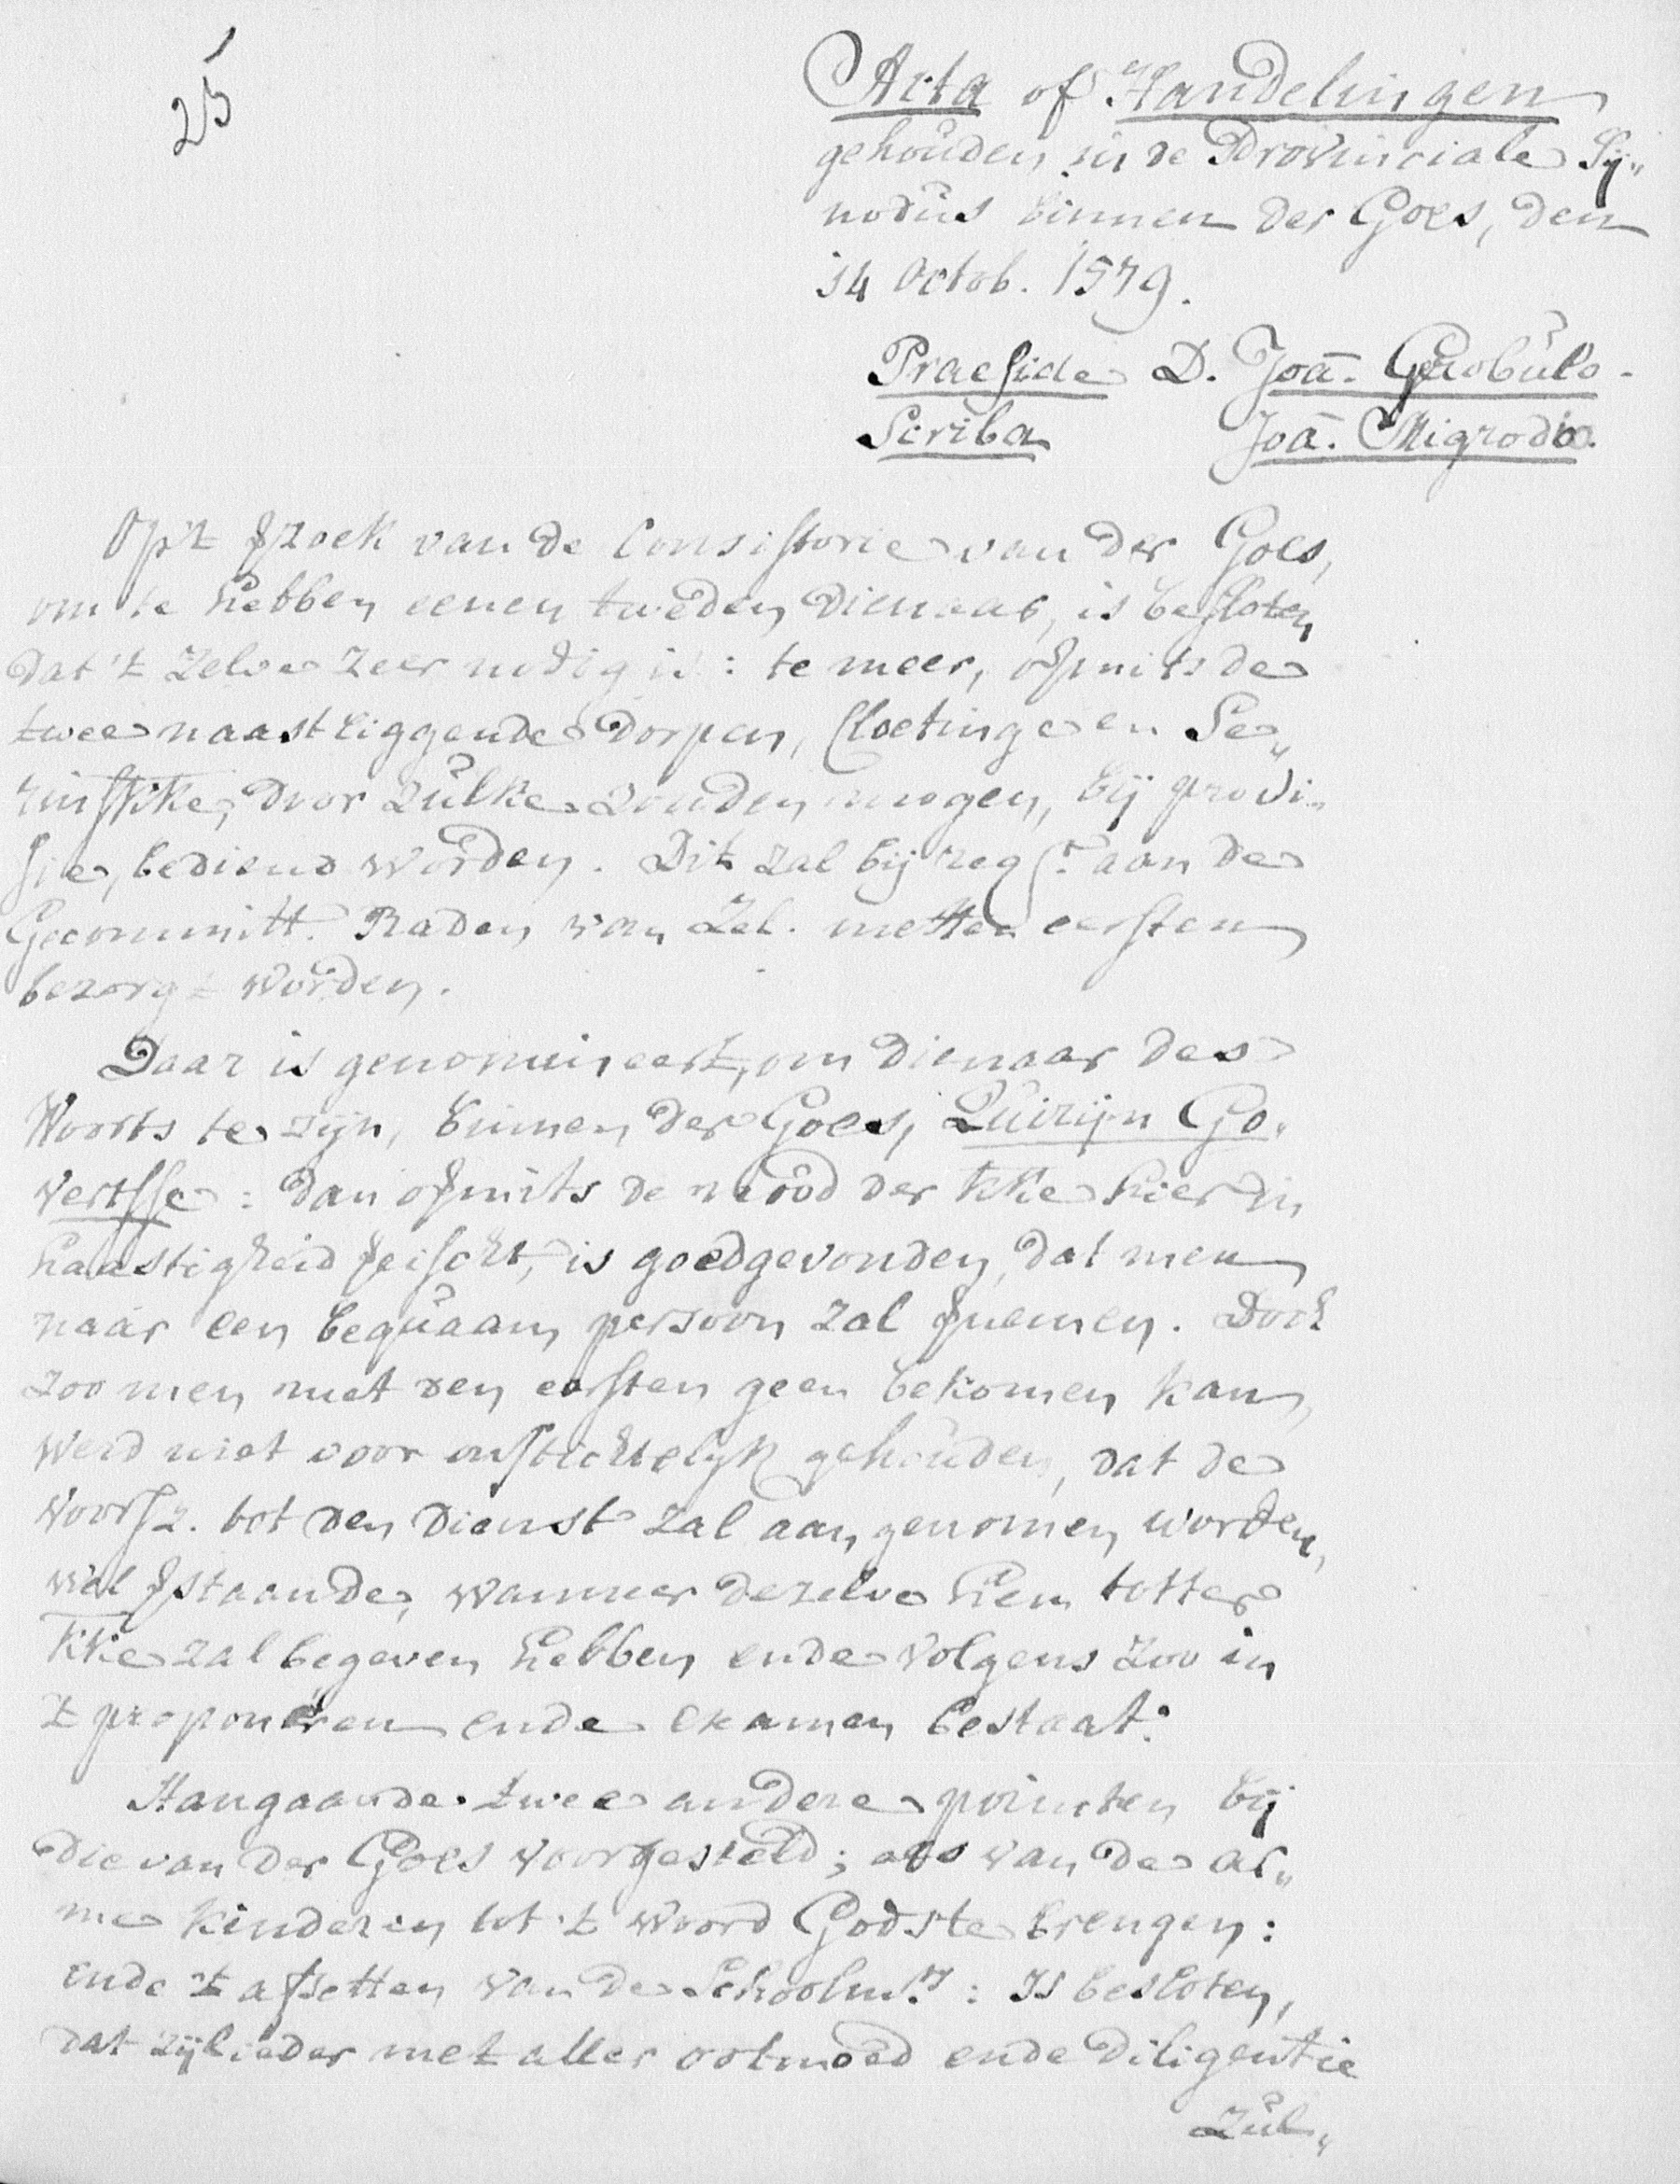 25
Acta of Handelingen
gehouden in de Provinciale Sy„
nodus binnen der Goes, den
14 Octob. 1579.
Praeside D. Joā. Gerobulo.
Scriba Joā. Migrodio.
Op't zoek van de Consistorie van der Goes,
om te hebben eenen tweden Dienaar, is besloten
dat 't zelve zeer nodig is: te meer, opmits de
twee naastliggende Dorpen, Cloetinge en Se„
rinskke, door zulke zouden mogen, bij provi„
sie, bediend worden. Dit zal bij reqr. aan de
Gecommitt. Raden van Zel. metten eersten
bezorgt worden.
Daar is genomineert, om Dienaar des
Woorts te zijn, binnen der Goes, Quirijn Go„
vertsse: dan opmits de nood der kke hier in
haastigheid heischt, is goedgevonden, dat men
naar een bequaam persoon zal vernemen. Doch
zoo men met den eersten geen bekomen kan,
werd niet voor onstichtelyk gehouden, dat de
voorsz. tot den Dienst zal aangenomen worden,
wel verstaande, wanneer dezelve hem totter
kke zal begeven hebben ende volgens zoo in
't proponéren ende examen bestaat.
Aangaande twee andere poincten bij
die van der Goes voorgesteld; als van de ar„
me kinderen tot 't woord Gods te brengen:
ende 't afsetten van de Schoolmr.: Is besloten,
dat zijlieder met aller ootmoed ende diligentie
Zul„